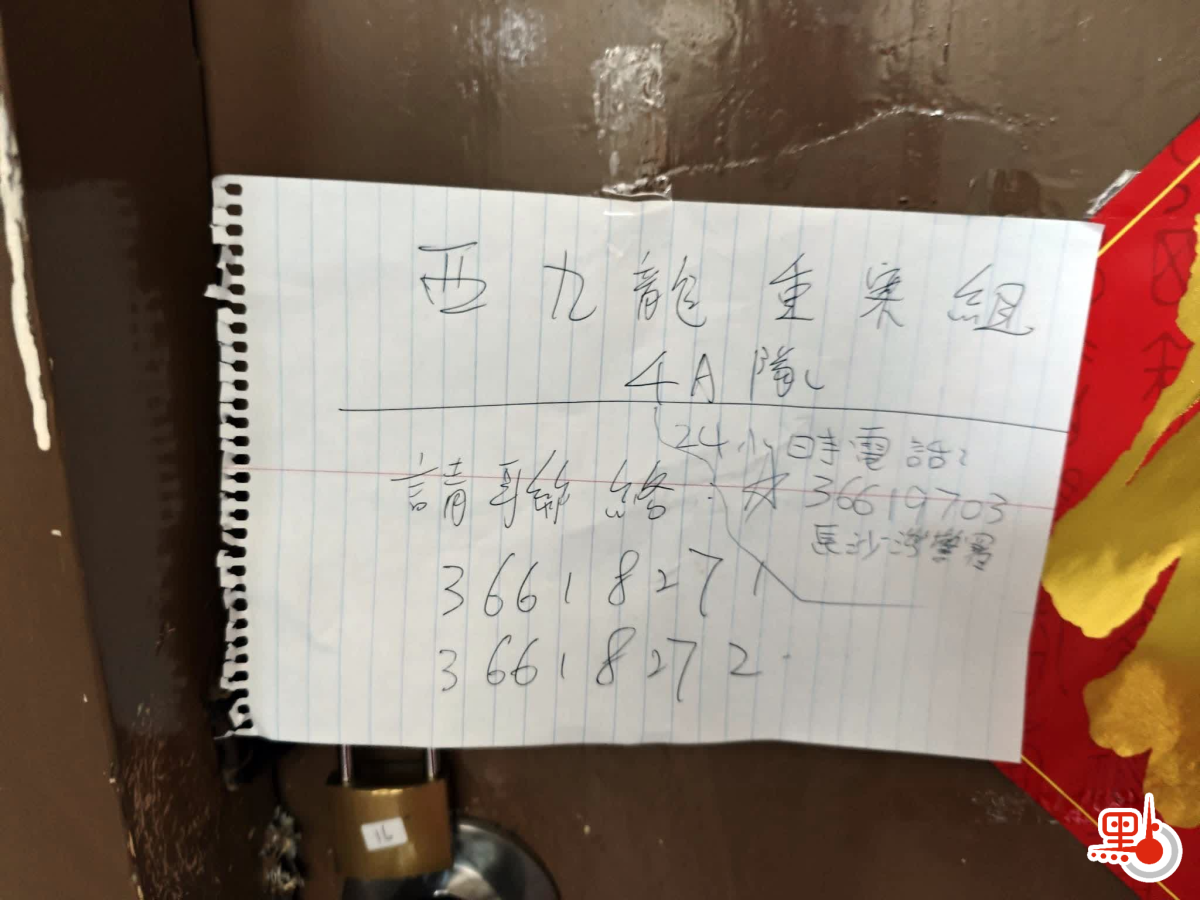 西九龍重案組
4A隊
24小時電話:
請聯絡:
36619703
長沙灣警署
36618271
36618272
16